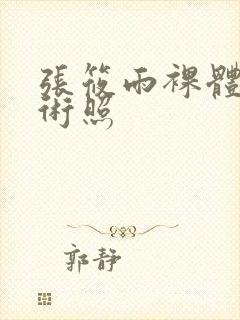 張筱雨裸體
術照
郭靜